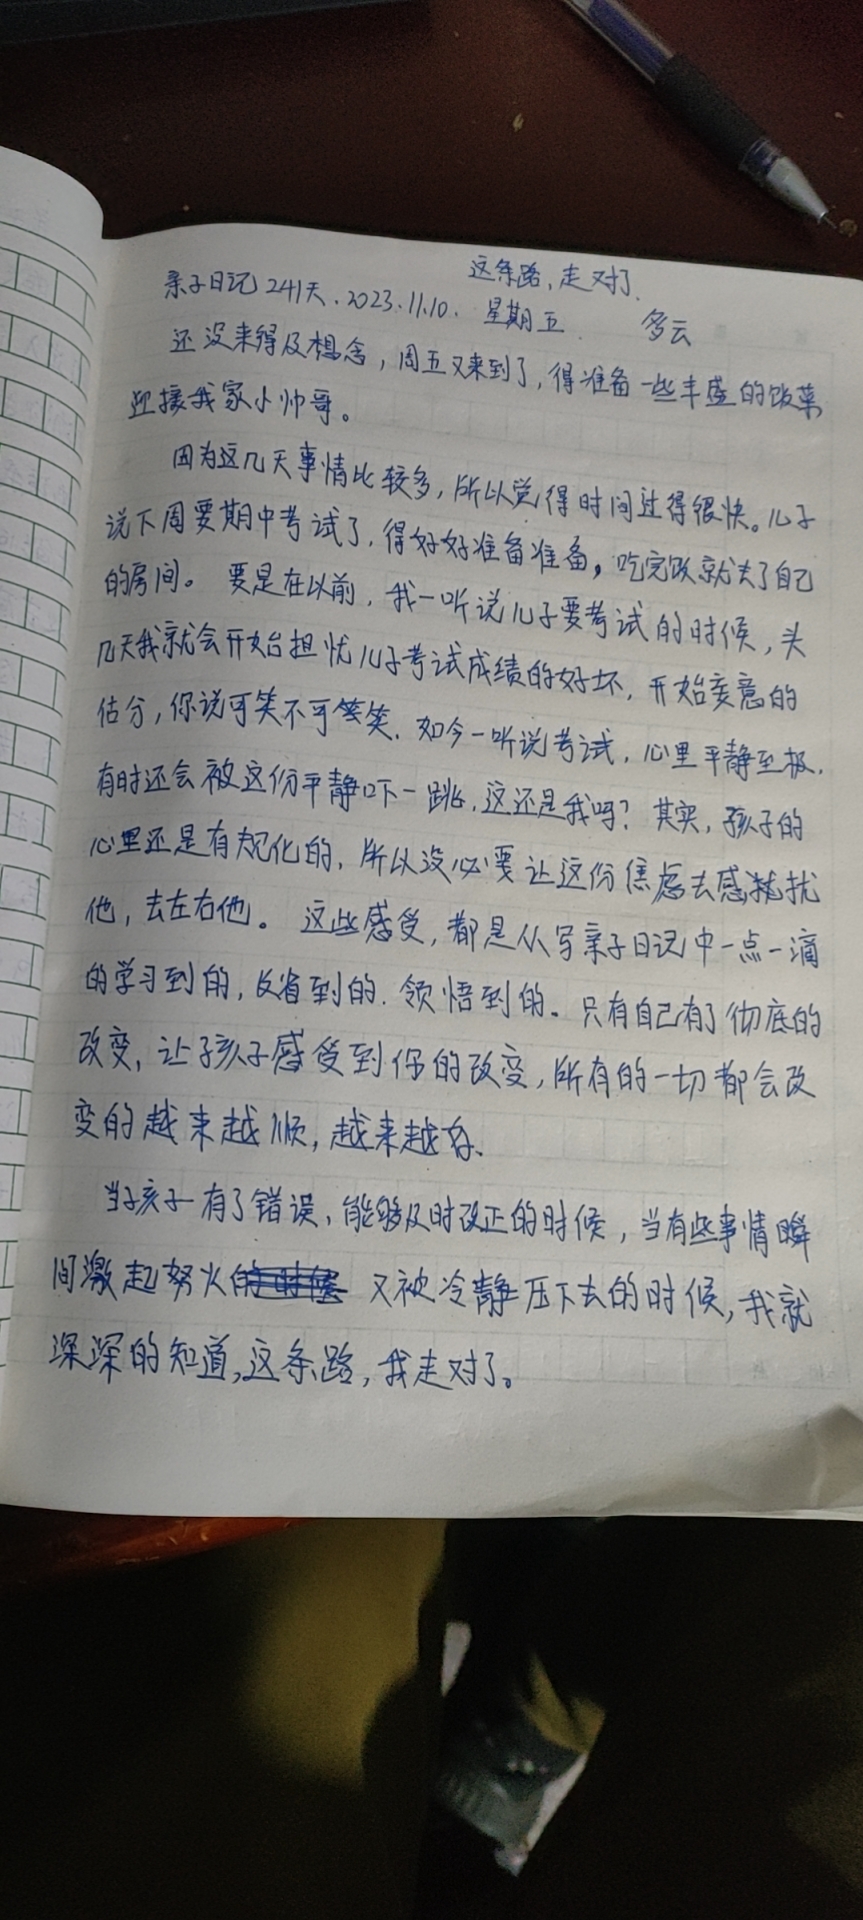 这条路,走对了.
亲子日记241天.2023.11.10. 星期五 多云
还没来得及想念,周五又来到了,得准备一些丰盛的饭菜
迎接我家小帅哥。
因为这几天事情比较多,所以觉得时间过得很快。儿子
说下周要期中考试了,得好好准备准备,吃完饭就去了自己
的房间。要是在以前,我一听说儿子要考试的时候,头
几天我就会开始担忧儿子考试成绩的好坏,开始变意的
估分,你说可笑不可笑.如今一听说考试,心里平静至极.
有时还会被这份平静吓一跳,这还是我吗?其实,孩子的
心里还是有规化的,所以没必要让这份焦虑去感扰
他,去左右他。这些感受,都是从写亲子日记中一点一滴
的学习到的,反省到的.领悟到的。只有自己有了彻底的
改变,让孩子感受到你的改变,所有的一切都会改
变的越来越顺,越来越好.
当孩子有了错误,能够及时改正的时候,当有些事情瞬
间激起努火 又被冷静压下去的时候,我就
深深的知道,这条路,我走对了。